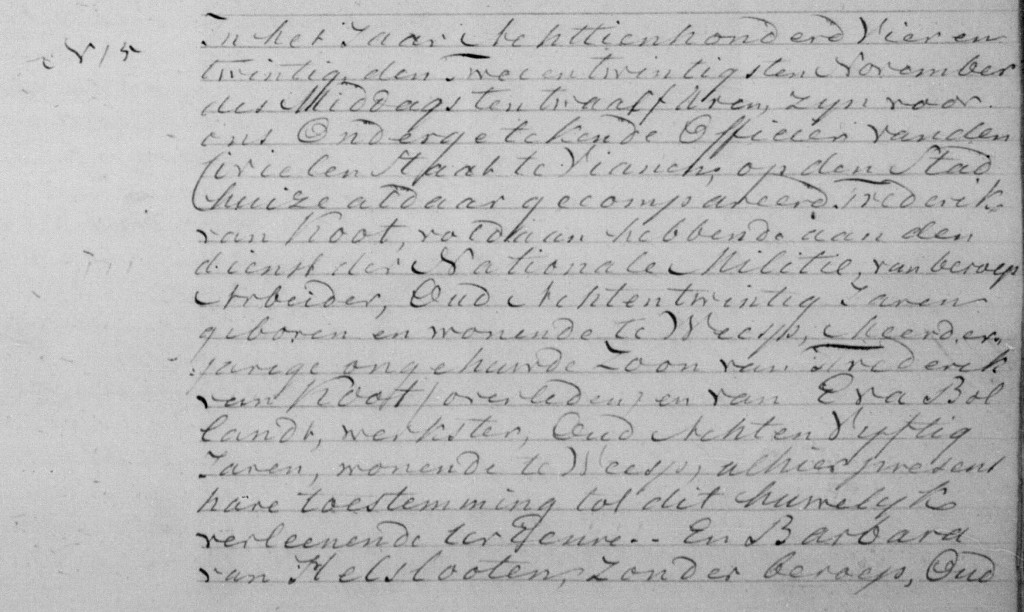 N 15
In het Jaar Achttienhonderd Vier en
twintig, den Twee en twintigsten November
des Middags ten twaalf Uren, zyn voor
ons Ondergetekende Officier van den
Civielen Staat te Vianen, op den Stad
huize aldaar gecompareerd Frederik
van Koot, voldaan hebbende aan den
dienst der Nationale Militie, van beroep
Arbeider, Oud Achtentwintig Jaren
geboren en wonende te Weesp, Meerder
jarige ongehuwde Zoon van Frederik
van Koot (overleden) en van Eva Bol
landt, werkster, Oud Achten Vyftig
Jaren, wonende te Weesp, alhier present
hare toestemming tot dit huwelyk
verleenende ter Eenre.. En Barbara
van Helslooten, Zonder beroep, Oud